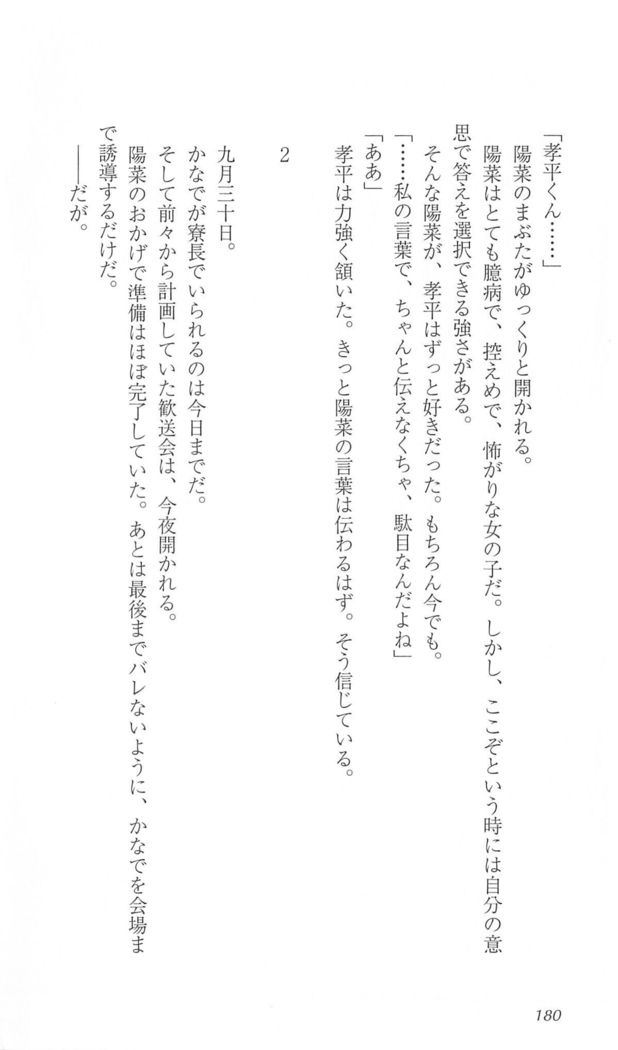 「孝平くん……」
　陽菜のまぶたがゆっくりと開かれる。
　陽菜はとても臆病で、控えめで、怖がりな女の子だ。しかし、ここぞという時には自分の意
思で答えを選択できる強さがある。
　そんな陽菜が、孝平はずっと好きだった。もちろん今でも。
「……私の言葉で、ちゃんと伝えなくちゃ、駄目なんだよね」
「ああ」
　孝平は力強く頷いた。きっと陽菜の言葉は伝わるはず。そう信じている。
2
　九月三十日。
　かなでが寮長でいられるのは今日までだ。
　そして前々から計画していた歓送会は、今夜開かれる。
　陽菜のおかげで準備はほぼ完了していた。あとは最後までバレないように、かなでを会場ま
で誘導するだけだ。
　――だが。
180